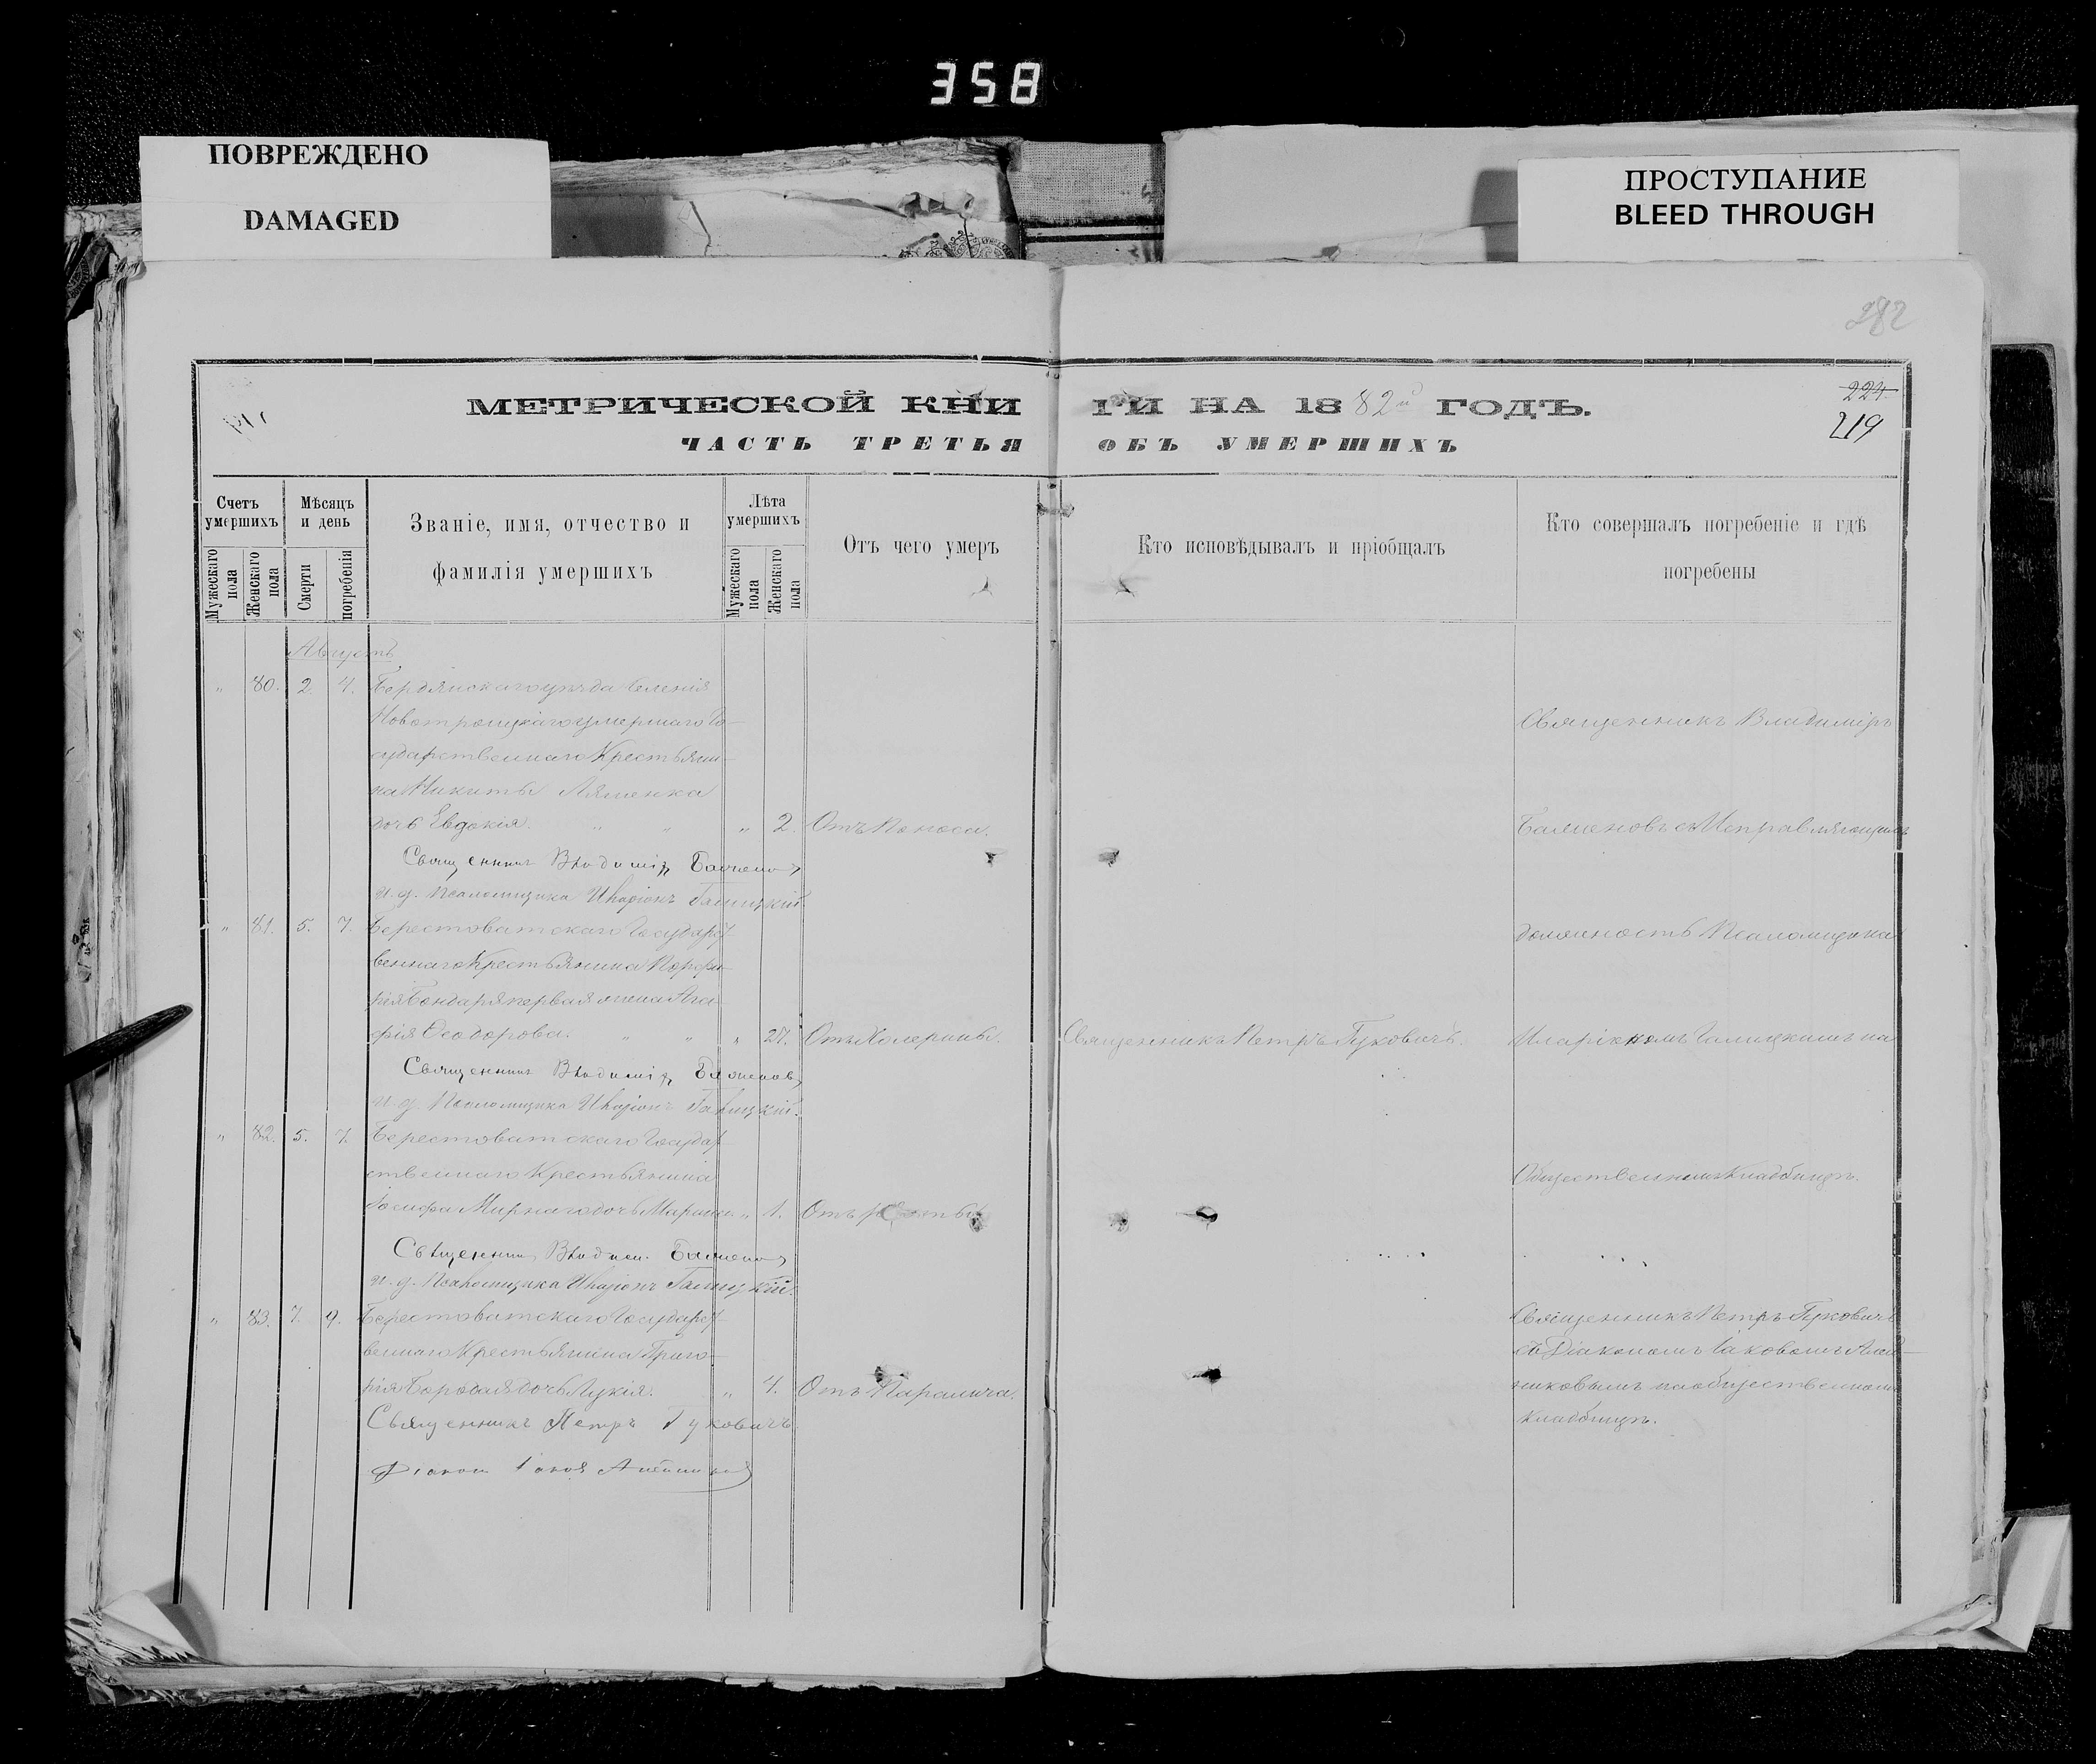 358
ПОВРЕЖДЕНО
DAMAGED
ПРОСТУПАНИЕ
BLEED THROUGH
282
МЕТРИЧЕСКОЙ КНИ ГИ НА 1882й ГОДЪ.
224
219
ЧАСТЬ ТРЕТЬЯ ОБЪ УМЕРШИХЪ
Счетъ умершихъ
Мужескаго пола
Женскаго пола
Мѣсяцъ и день
Смерти
погребенія
Званіе, имя, отчество и
фамилія умершихъ
Лѣта умершихъ
Мужескаго пола
Женскаго пола
Отъ чего умеръ
Кто исповѣдывалъ и пріобщалъ
Кто совершалъ погребеніе и гдѣ
погребены
Августъ
" 80. 2. 4. Бердянскаго уѣзда Селенія
Новотроицкаго умершаго Го-
сударственнаго Крестьяни-
на Никиты Ляшенка
дочь Евдокія. " " " 2. Отъ Поноса.
Священникъ Владиміръ
Баженовъ съ Исправляющимъ
Священникъ Владиміръ Баженовъ
И. д. Псаломщика Иларіонъ Галицкій.
" 81. 5. 7. Берестоватскаго Государст-
веннаго Крестьянина Порфи-
рія Бондаря первая жена Ага-
фія Ѳеодорова. " " " 27. Отъ Холерины. Священникъ Петръ Гуковичъ.
должность Псаломщика
Иларіономъ Галицкимъ на
Священникъ Владиміръ Баженовъ
И. д. Псаломщика Иларіонъ Галицкій.
" 82. 5. 7. Берестоватскаго Государ-
ственнаго Крестьянина
Іосифа Мирнаго дочь Марина. " 1. Отъ
Общественномъ Кладбищѣ.
Священникъ Владим. Баженовъ
И. д. Псаломщика Иларіонъ Галицкій.
" 83. 7. 9. Берестоватскаго Государст-
веннаго Крестьянина Григо-
рія дочь Лукія. " 4. Отъ Паралича.
Священникъ Петръ Гуковичъ
съ Діакономъ Іаковомъ
на общественномъ
Кладбищѣ.
Священникъ Петръ Гуковичъ
Діаконъ Іаковъ